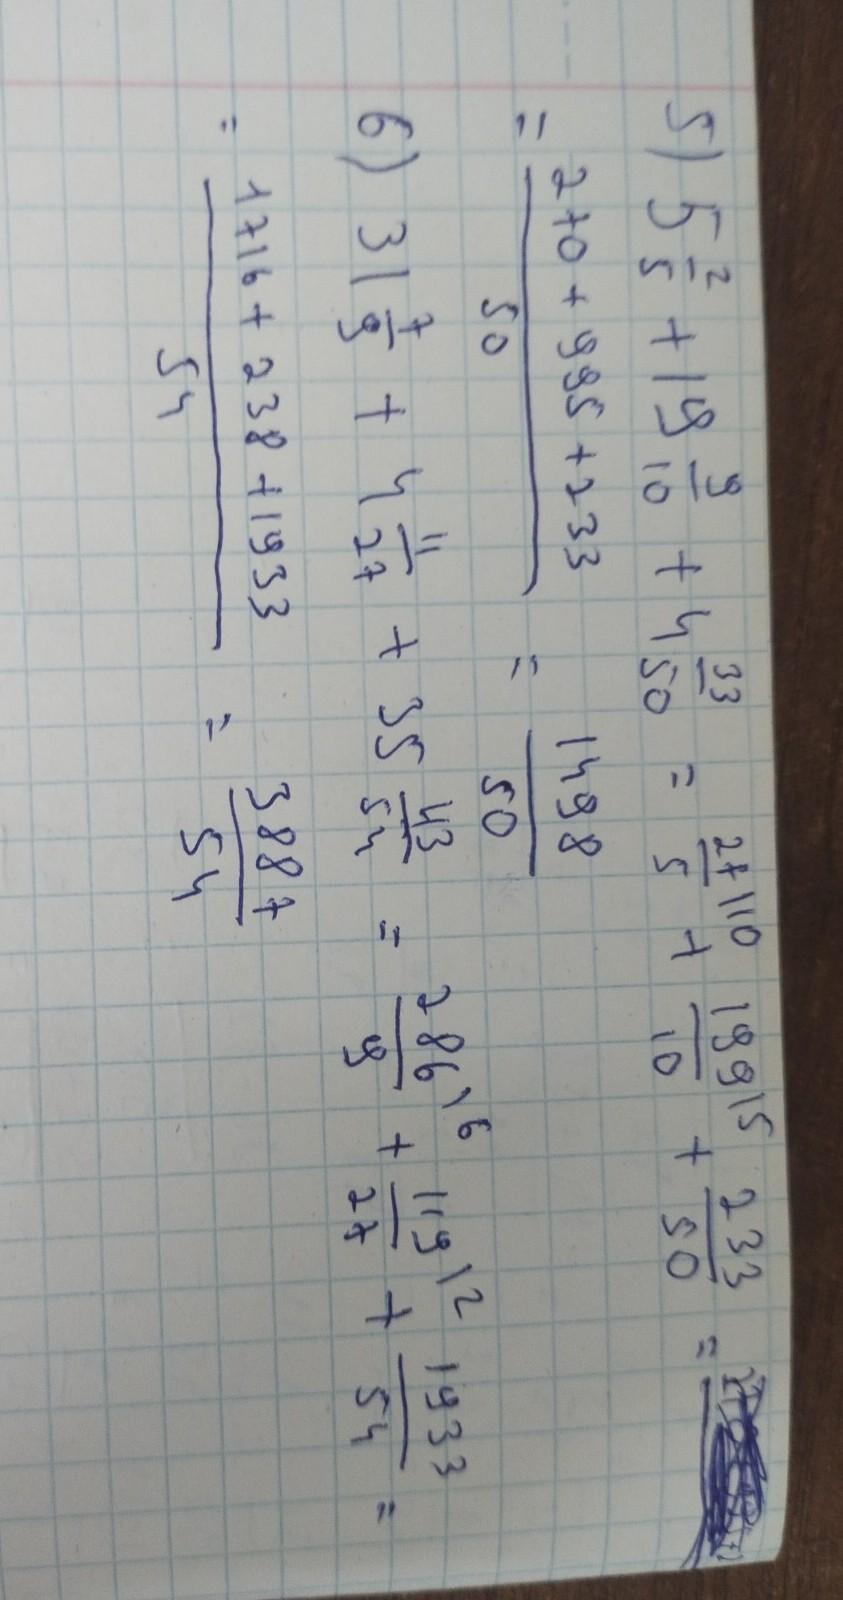 5) 5 2/5 + 19 9/10 + 4 33/50 = 27/5 \10 + 199/10 \5 + 233/50 =
= (270 + 995 + 233)/50 = 1498/50
6) 31 7/9 + 4 11/27 + 35 43/54 = 286/9 \6 + 119/27 \2 + 1933/54 =
= (1716 + 238 + 1933)/54 = 3887/54